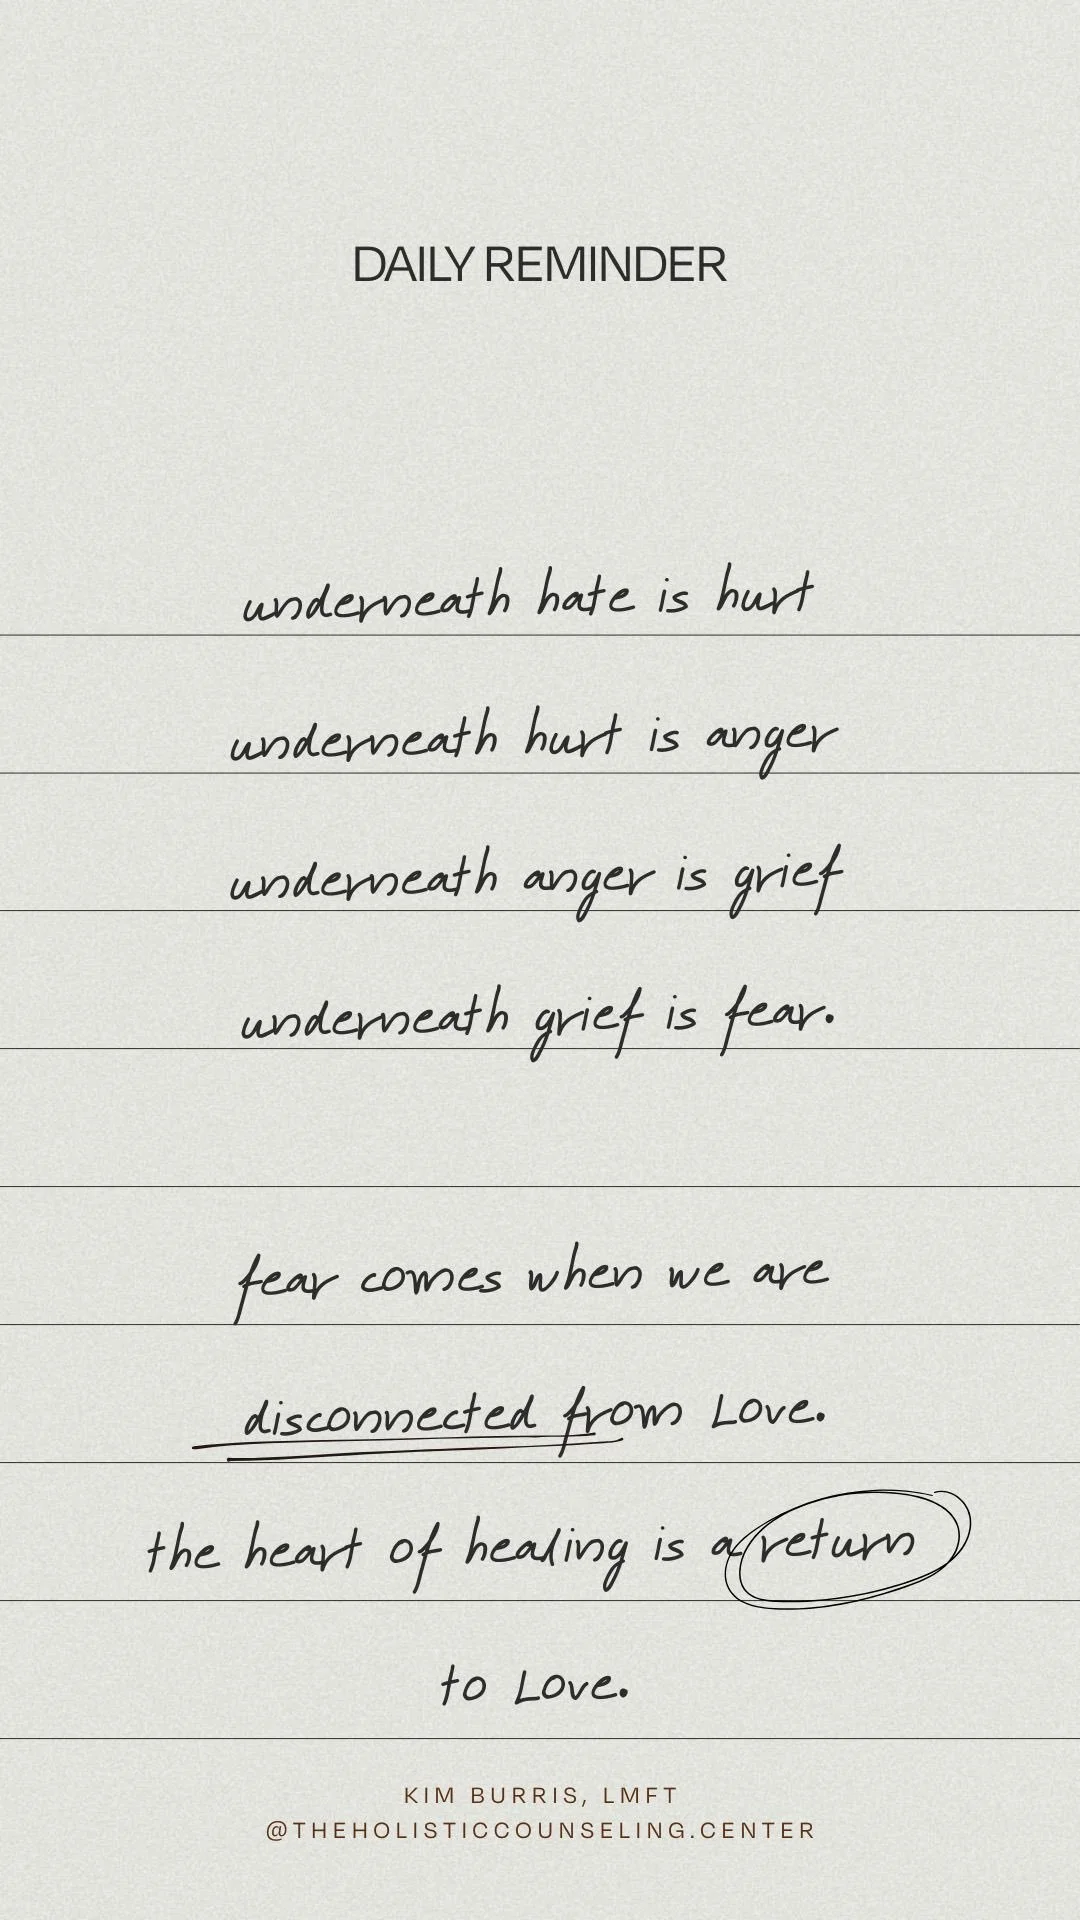 DAILY REMINDER
underneath hate is hurt
underneath hurt is anger
underneath anger is grief
underneath grief is fear.
fear comes when we are
disconnected from Love.
the heart of healing is a return
to Love.
KIM BURRIS, LMFT
@THEHOLISTICCOUNSELING.CENTER